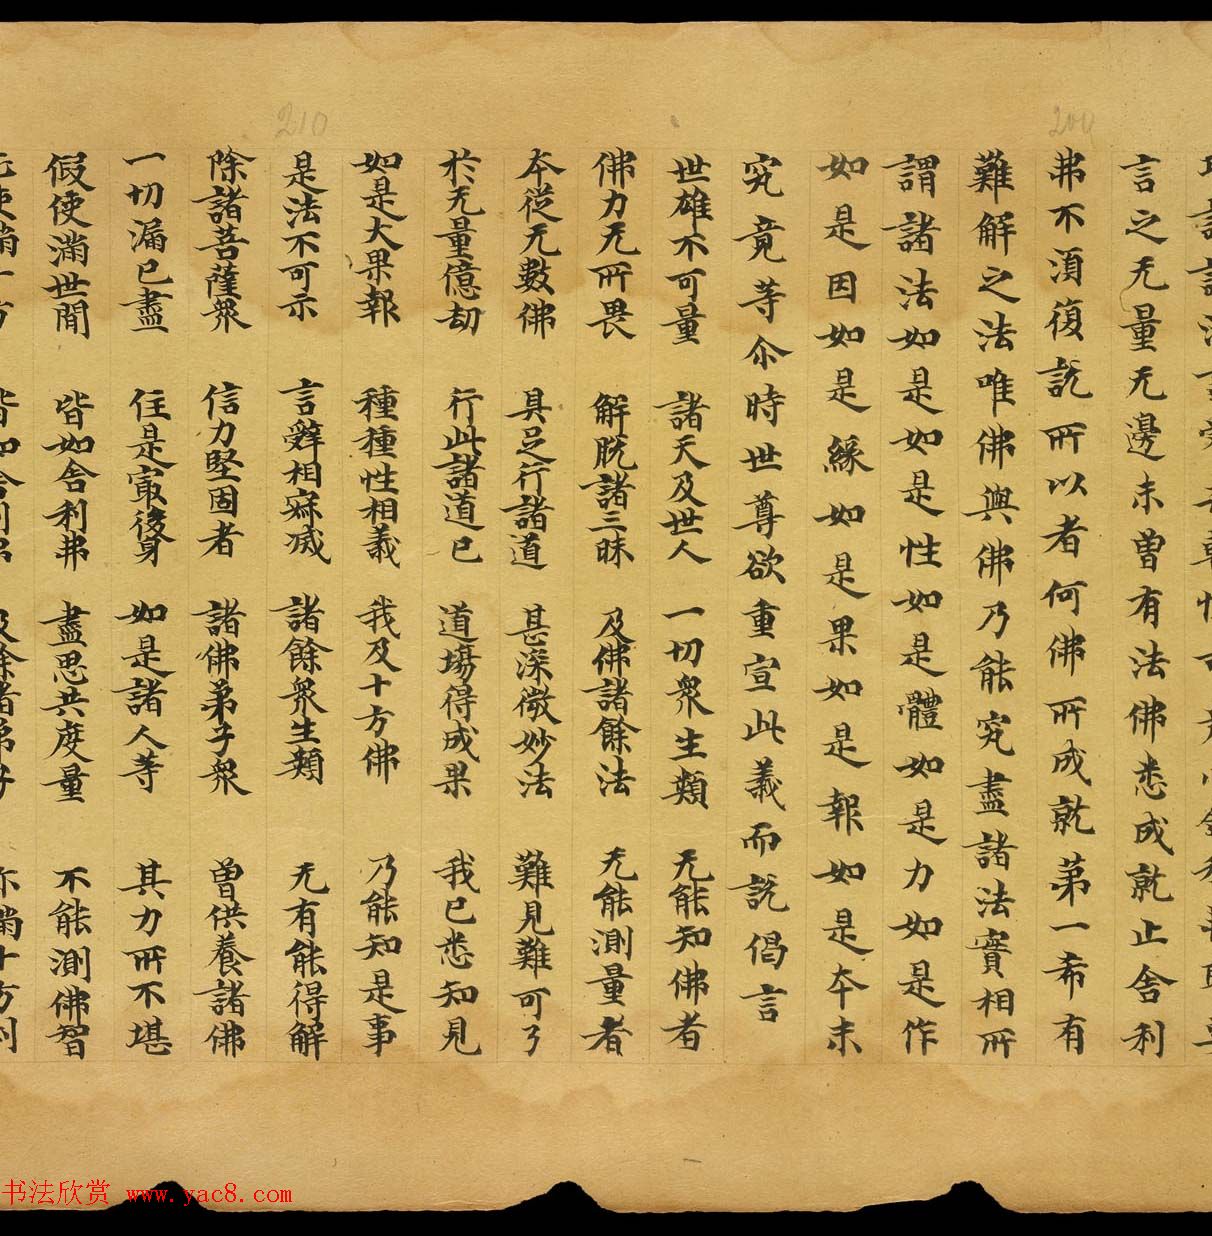 200
210
言之无量无邊未曾有法佛悉成就止舍利
弗不湏復說所以者何佛所成就第一希有
難解之法唯佛與佛乃能究盡諸法實相所
謂諸法如是如是性如是體如是力如是作
如是因如是緣如是果如是報如是夲末
究竟等尒時世尊欲重宣此義而說偈言
世雄不可量 諸天及世人 一切衆生類 无能知佛者
佛力无所畏 解脫諸三昧 及佛諸餘法 无能測量者
夲從无數佛 具足行諸道 甚深微妙法 難見難可了
於无量億劫 行此諸道已 道場得成果 我已悉知見
如是大果報 種種性相義 我及十方佛 乃能知是事
是法不可示 言辭相寂滅 諸餘衆生類 无有能得解
除諸菩薩衆 信力堅固者 諸佛弟子衆 曾供養諸佛
一切漏已盡 住是㝡後身 如是諸人等 其力所不堪
假使滿世間 皆如舍利弗 盡思共度量 不能測佛智
书法欣赏 www.yac8.com